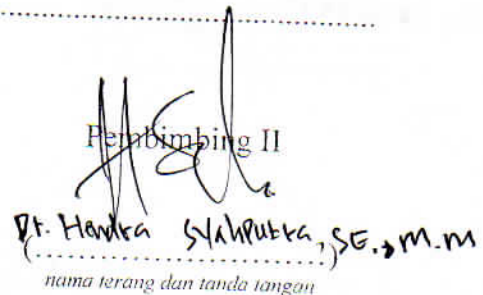 Pembimbing II
Dr. Hendra Syahputra, SE., M.M
(..............................)
nama terang dan tanda tangan